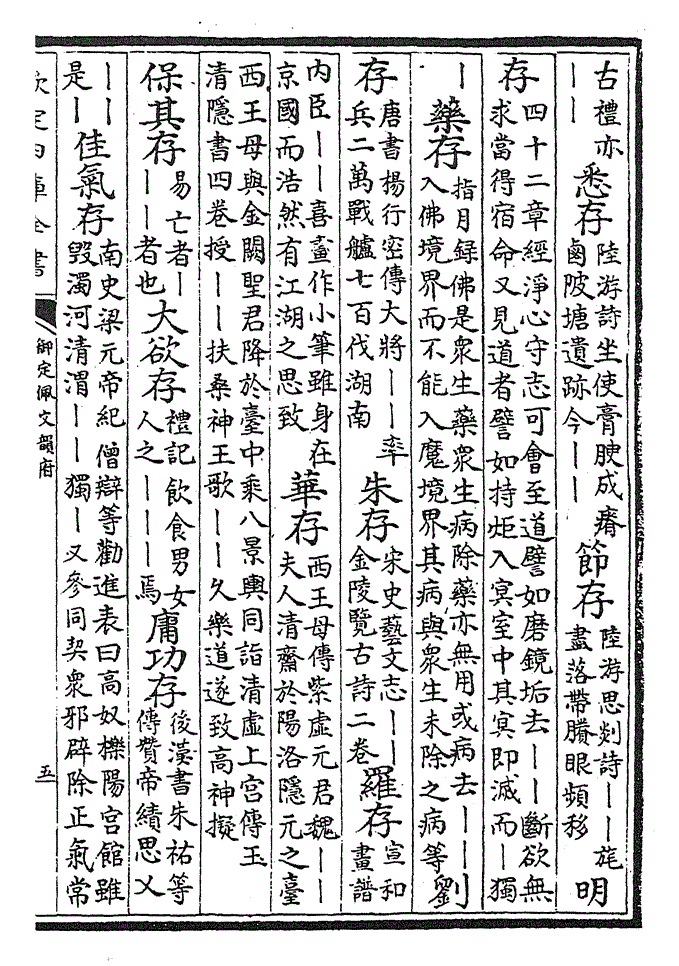 古禮亦｜｜悉存陸游詩坐使膏腴成瘠鹵陂塘遺跡今｜｜節存陸游思剡詩｜｜旄盡落帶賸眼頻移明
存四十二章經淨心守志可會至道譬如磨鏡垢去｜｜斷欲無求當得宿命又見道者譬如持炬入冥室中其冥即滅而｜獨
｜藥存指月錄佛是衆生藥衆生病除藥亦無用或病去｜｜入佛境界而不能入魔境界其病與衆生未除之病等劉
存唐書楊行密傳大將｜｜率兵二萬戰艫七百伐湖南朱存宋史藝文志｜｜金陵覽古詩二卷羅存宣和畫譜
內臣｜｜喜畫作小筆雖身在京國而浩然有江湖之思致華存西王母傳紫虛元君魏｜｜夫人清齋於陽洛隱元之臺
西王母與金闕聖君降於臺中乘八景輿同詣清虛上宮傳玉清隱書四卷授｜｜扶桑神王歌｜｜久樂道遂致高神擬
保其存易亡者｜｜｜者也大欲存禮記飲食男女人之｜｜｜焉庸功存後漢書朱祐等傳贊帝績思乂
｜｜是｜佳氣存南史梁元帝紀僧辯等勸進表曰高奴櫟陽宮館雖毀濁河清渭｜｜獨｜又參同契衆邪辟除正氣常
欽定四庫全書
御定佩文韻府
五